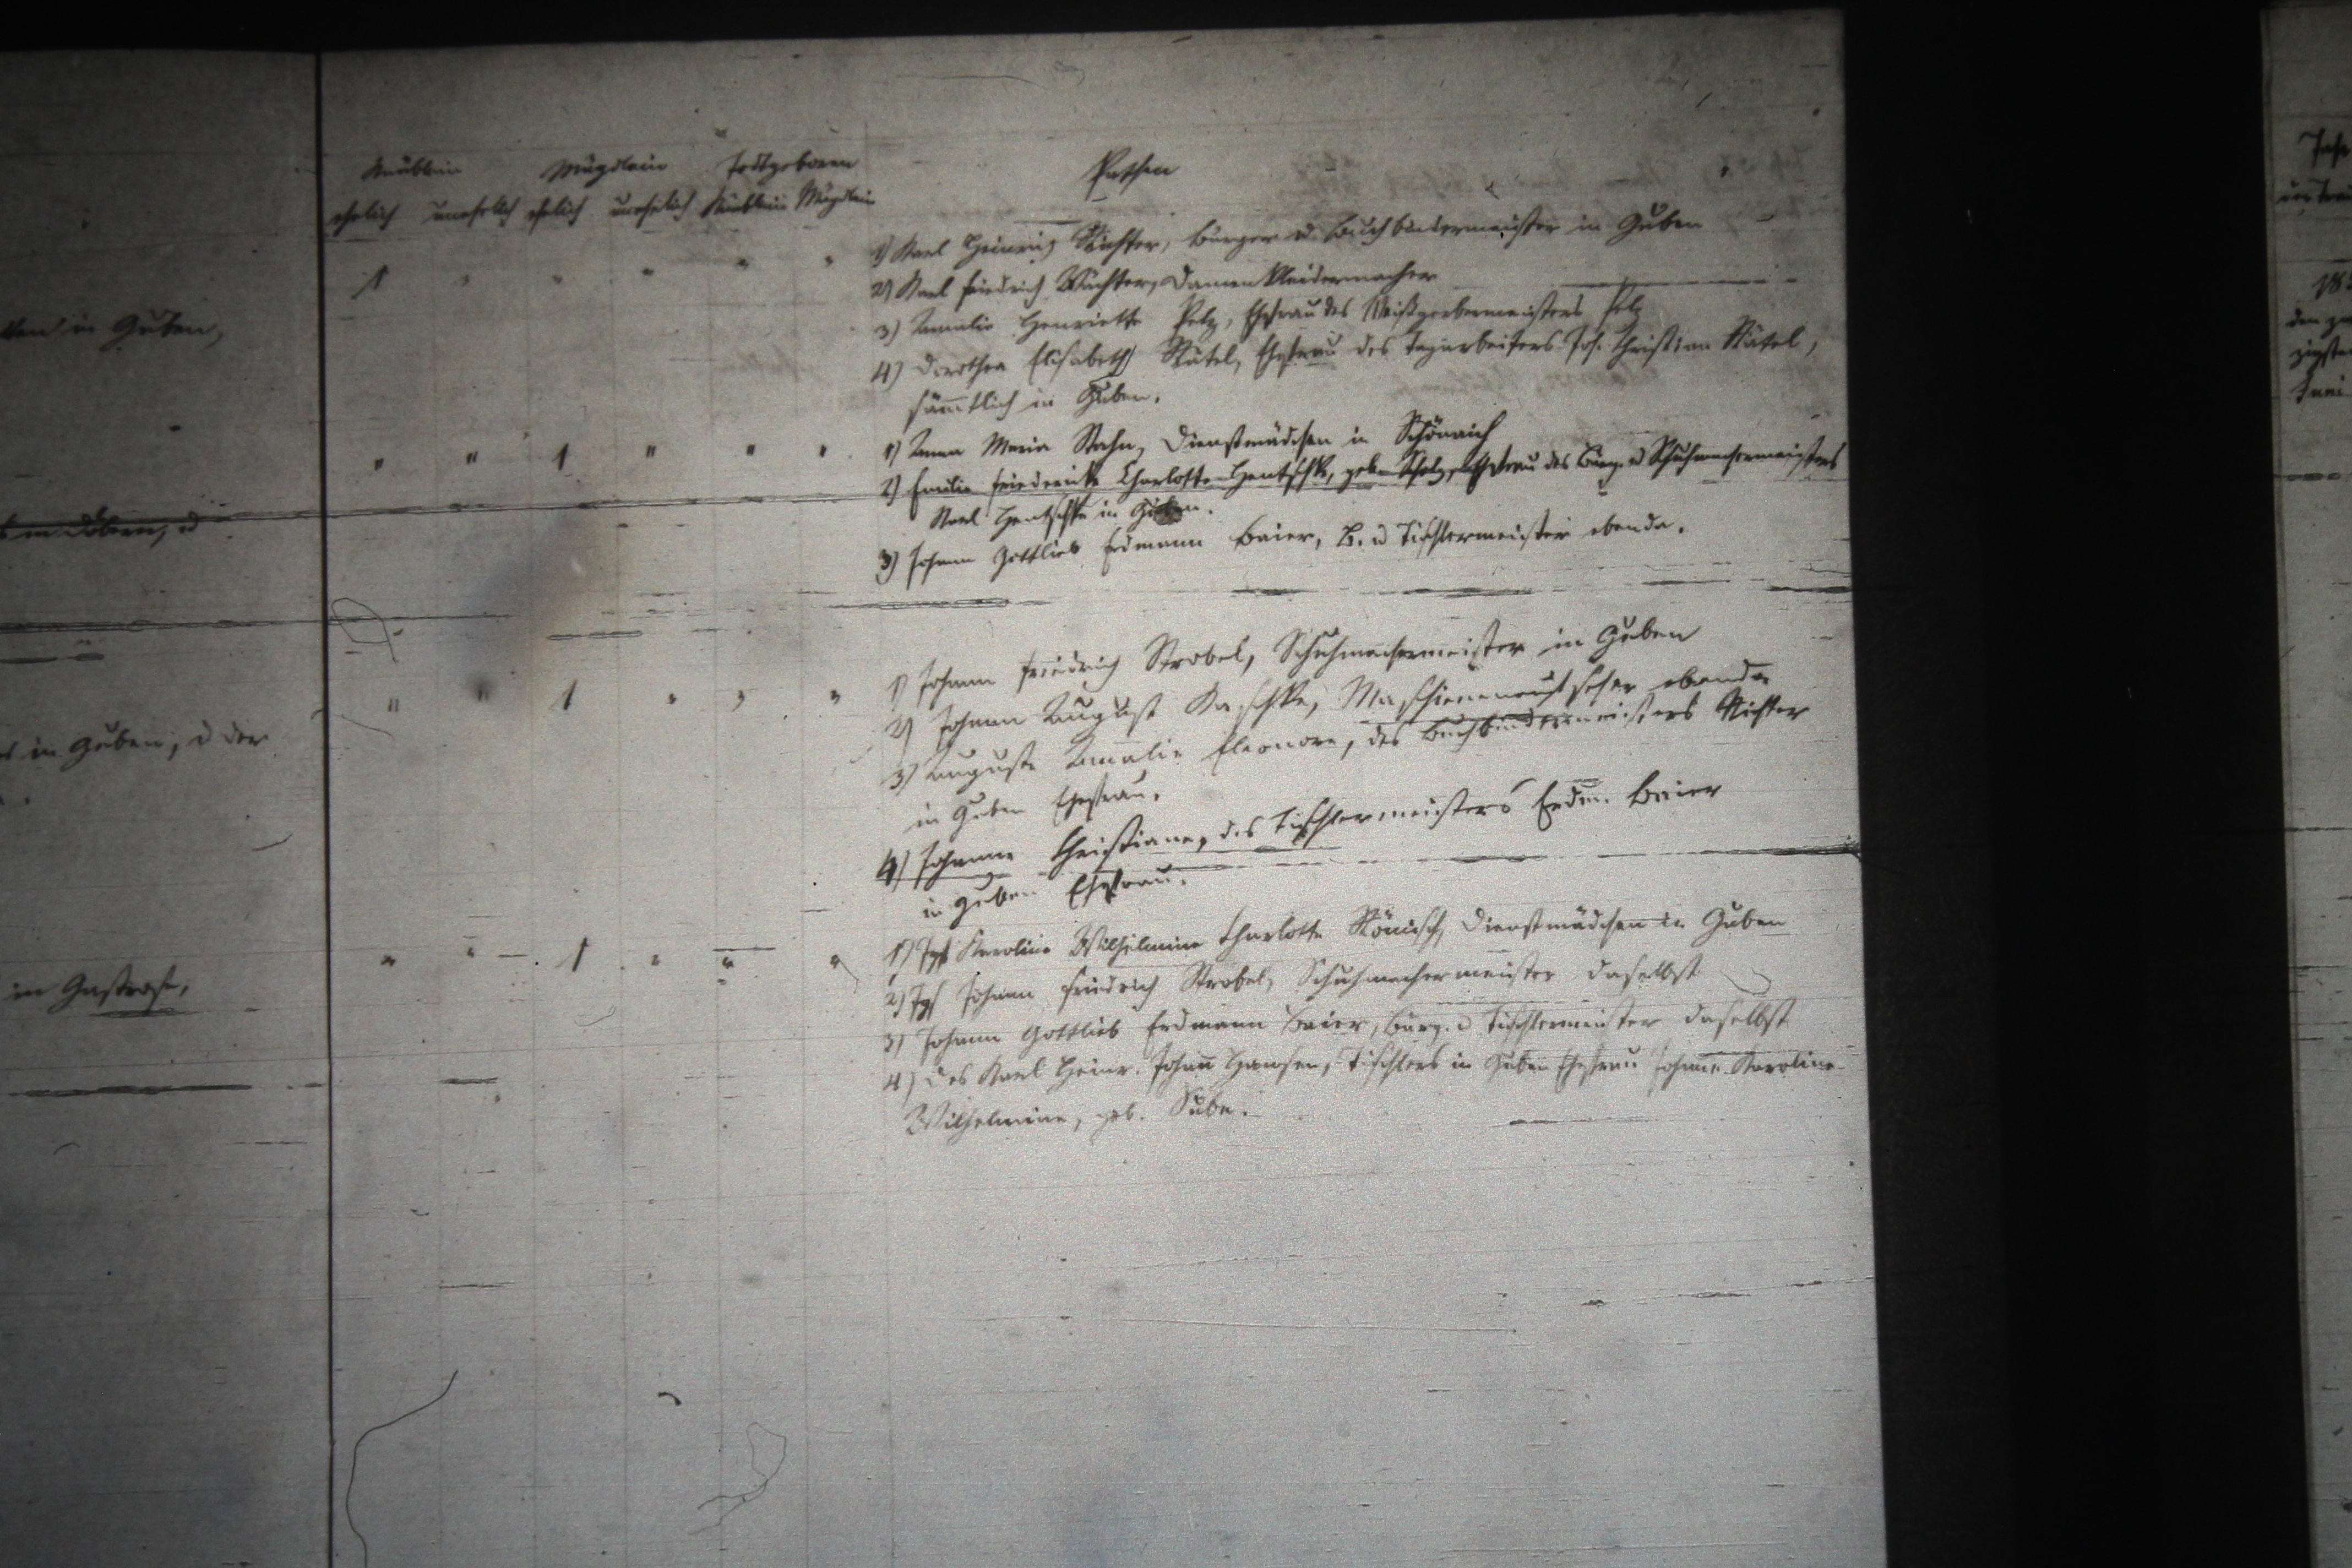 Knäblein Mägdlein Todtgeboren
ehelich unehelich ehelich unehelich Knäblein Mägdlein
Pathen
1) Karl Heinrich Richter, Bürger u Buchbindermeister in Guben
1 " " " " "
2) Karl Friedrich Wüchter, Damenkleidermacher
3) Amalie Henriette Pelz, Ehefrau des Weißgerbermeisters Pelz
4) Dorothea Elisabeth Rätel, Ehefrau des Tagarbeiters Joh. Christian Rätel,
sämmtlich in Guben.
in Guben,
" " 1 " " "
1) Anna Maria Stahn, Dienstmädchen in Schönaich
2) Emilie Friedericke Charlotte Hentschke, geb. Scholz, Ehefrau des Bürg. u Schuhmachermeisters
Karl Hentschke in Guben.
3) Johann Gottlieb Erdmann Baier, B. u Tischlermeister ebenda.
in Döbern, u
" " 1 " " "
1) Johann Friedrich Strobel, Schuhmachermeister in Guben
2) Johann August Kaschke, ebenda
3) Auguste Amalie Eleonore, des Buchbindermeisters Richter
in Guben Ehefrau.
4) Johanne Christiane, des Tischlermeisters Erdm. Baier
in Guben Ehefrau.
in Guben, u der
" " 1 " " "
1) Igf Karoline Wilhelmine Charlotte Römisch, Dienstmädchen in Guben
2) Igs Johann Friedrich Strobel, Schuhmachermeister daselbst
3) Johann Gottlieb Erdmann Baier, Bürg. u Tischlermeister daselbst
4) des Karl Heinr. Johann Hansen, Tischlers in Guben Ehefrau Johanne Karoline
Wilhelmine, geb.
in Gastrose,